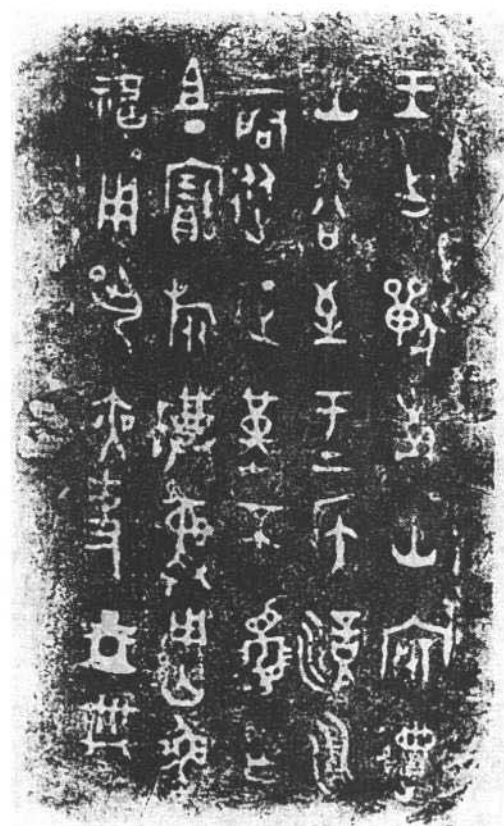 王出獸南山
山谷至于上侯滰川
上啓從征堇不擾乍
且丁寶旅尊彝用匄魯
福用夙夜事